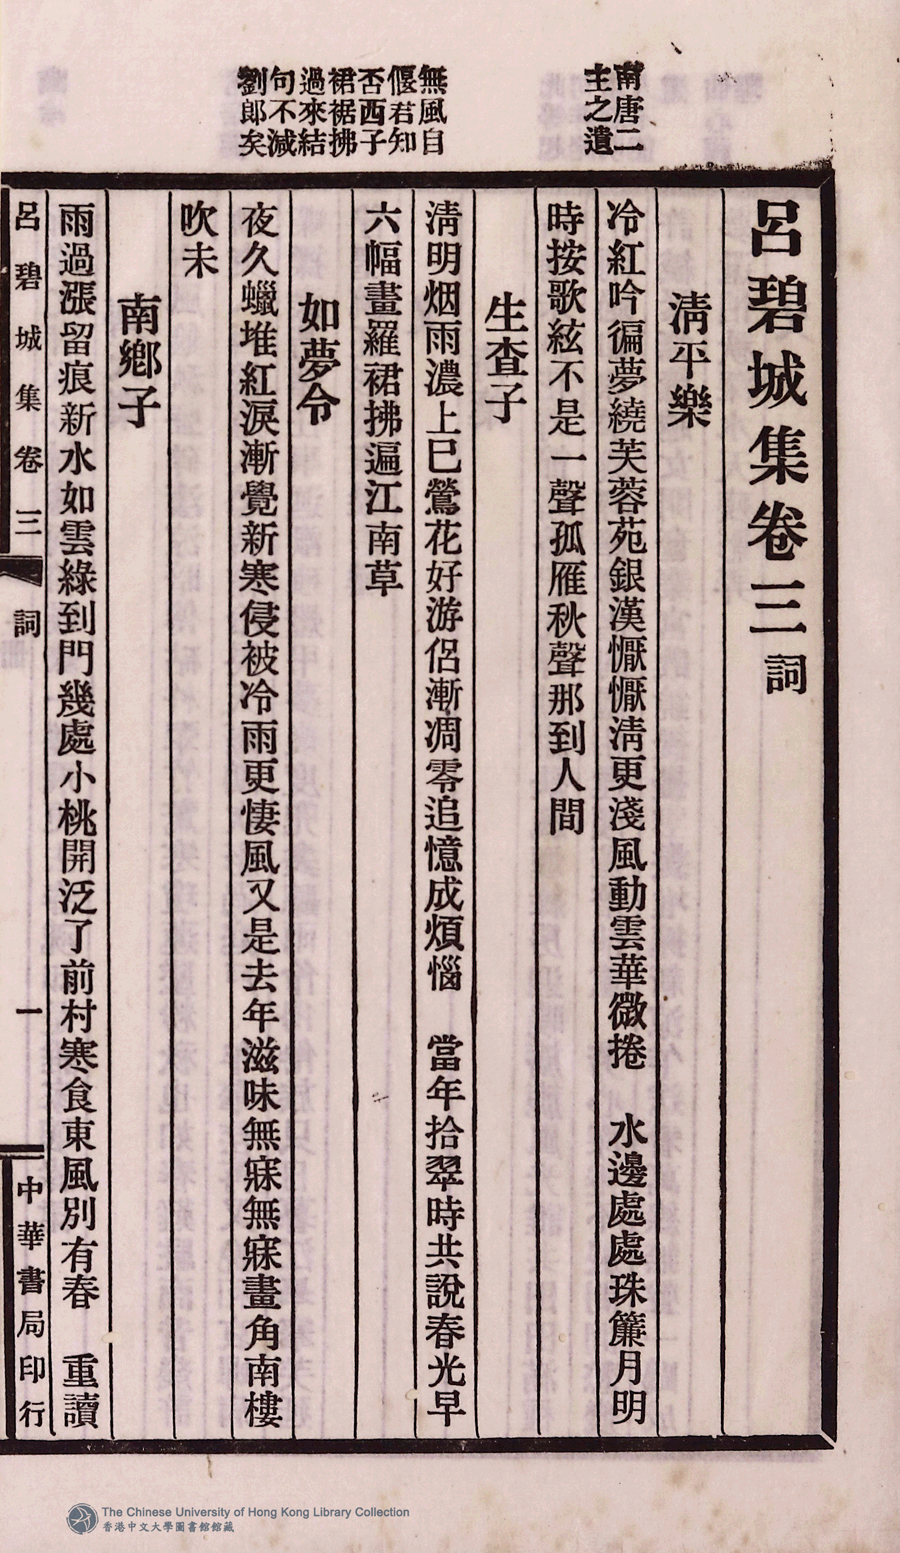 呂碧城集卷三 詞
南唐二
主之遺
清平樂
冷紅吟徧夢繞芙蓉苑銀漢懨懨清更淺風動雲華微捲　水邊處處珠簾月明
時按歌絃不是一聲孤雁秋聲那到人間
生查子
無風自
偃君知
否西子
裙裾拂
過來結
句不減
劉郎矣
清明烟雨濃上巳鶯花好游侶漸凋零追憶成煩惱　當年拾翠時共說春光早
六幅畫羅裙拂遍江南草
如夢令
夜久蠟堆紅淚漸覺新寒侵被冷雨更悽風又是去年滋味無寐無寐畫角南樓
吹未
南鄉子
雨過漲留痕新水如雲綠到門幾處小桃開泛了前村寒食東風別有春　重讀
呂碧城集卷三　詞　一　中華書局印行
The Chinese University of Hong Kong Library Collection
香港中文大學圖書館館藏